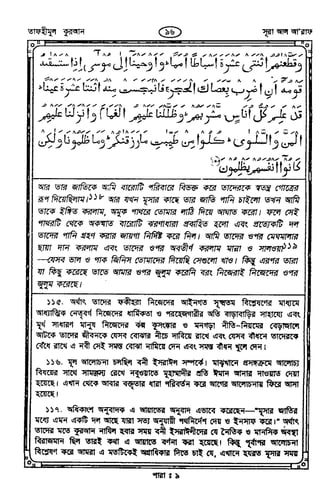 তাফহীমুল কুরআন
৯৬
সূরা আল আ'রাফ
وَقَطَّعْنٰهُمُ اثْنَتَىْ عَشْرَةَ اَسْبَاطًا اُمَمًا وَاَوْحَيْنَا اِلٰى مُوْسٰى اِذِ اسْتَسْقٰىهُ
قَوْمُهٗ اَنِ اضْرِبْ بِّعَصَاكَ الْحَجَرَ فَانْبَجَسَتْ مِنْهُ اثْنَتَا عَشْرَةَ عَيْنًا
قَدْ عَلِمَ كُلُّ اُنَاسٍ مَّشْرَبَهُمْ وَظَلَّلْنَا عَلَيْهِمُ الْغَمَامَ وَاَنْزَلْنَا عَلَيْهِمُ
الْمَنَّ وَالسَّلْوٰى كُلُوْا مِنْ طَيِّبٰتِ مَا رَزَقْنٰكُمْ وَمَا ظَلَمُوْنَا وَلٰكِنْ
كَانُوْا اَنْفُسَهُمْ يَظْلِمُوْنَ
আর তার জাতিকে আমি বারোটি পরিবারে বিভক্ত করে তাদেরকে স্বতন্ত্র গোত্রের
রূপ দিয়েছিলাম।১১৮ আর যখন মূসার কাছে তার জাতি পানি চাইলো তখন আমি
তাকে ইঙ্গিত করলাম, অমুক পাথরে তোমার লাঠি দিয়ে আঘাত করো। ফলে সেই
পাথরটি থেকে অকস্মাত বারোটি ঝরণাধারা প্রবাহিত হলো এবং প্রত্যেকটি দল
তাদের পানি গ্রহণ করার জায়গা নির্দিষ্ট করে নিল। আমি তাদের ওপর মেঘমালার
ছায়া দান করলাম এবং তাদের ওপর অবতীর্ণ করলাম মান্না ও সালওয়া১১৯
—যেসব ভাল ও পাক জিনিস তোমাদের দিয়েছি সেগুলো খাও। কিন্তু এরপর তারা
যা কিছু করেছে তাতে আমার ওপর জুলুম করেনি বরং নিজেরাই নিজেদের ওপর
জুলুম করেছে।
১১৫. অর্থাৎ তাদের ফকীহরা নিজেদের আইনগত সূক্ষ্মতম বিশ্লেষণের মাধ্যমে
আধ্যাত্মিক নেতৃবর্গ নিজেদের ধার্মিকতা ও পরহেজগারীর অতি বাড়াবাড়ির সাহায্যে এবং
মূর্খ সাধারণ মানুষ নিজেদের কল্প কুসংস্কার ও মনগড়া নীতি-নিয়মের বেড়াজালে
আটকে তাদের জীবনকে যেসব বোঝার নীচে দাবিয়ে রাখে এবং যেসব বাঁধনে তাদেরকে
বেঁধে রাখে এ নবী সেই সমস্ত বোঝা নামিয়ে দেন এবং সমস্ত বাঁধন খুলে দেন।
১১৬. মূল আলোচনা চলছিল বনী ইসরাঈল সম্পর্কে। মাঝখানে প্রসঙ্গক্রমে আলোচ্য
বিষয়ের সাথে সামঞ্জস্য রেখে নবুওয়াতে মুহাম্মাদীর প্রতি ঈমান আনার দাওয়াত দেয়া
হয়েছে। এখান থেকে আবার বক্তৃতার ধারা পরিবর্তন করে আগের আলোচনায় ফিরে আসা
হয়েছে।
১১৭. অধিকাংশ অনুবাদক এ আয়াতের অনুবাদ এভাবে করেছেন—"মূসার জাতির
মধ্যে এমন একটি দল আছে যারা সত্য অনুযায়ী পথনির্দেশ দেয় ও ইনসাফ করে।" অর্থাৎ
তাদের মতে কুরআন নাযিল হবার সময় বনী ইসরাঈলীদের যে নৈতিক ও মানসিক অবস্থা
বিরাজমান ছিল তারই কথা এ আয়াতে বর্ণনা করা হয়েছে। কিন্তু পূর্বাপর আলোচনা
বিশ্লেষণ করে আমরা এ মতটিকেই অগ্রাধিকার দিতে চাই যে, এখানে হযরত মূসার সময়
পারা : ৯